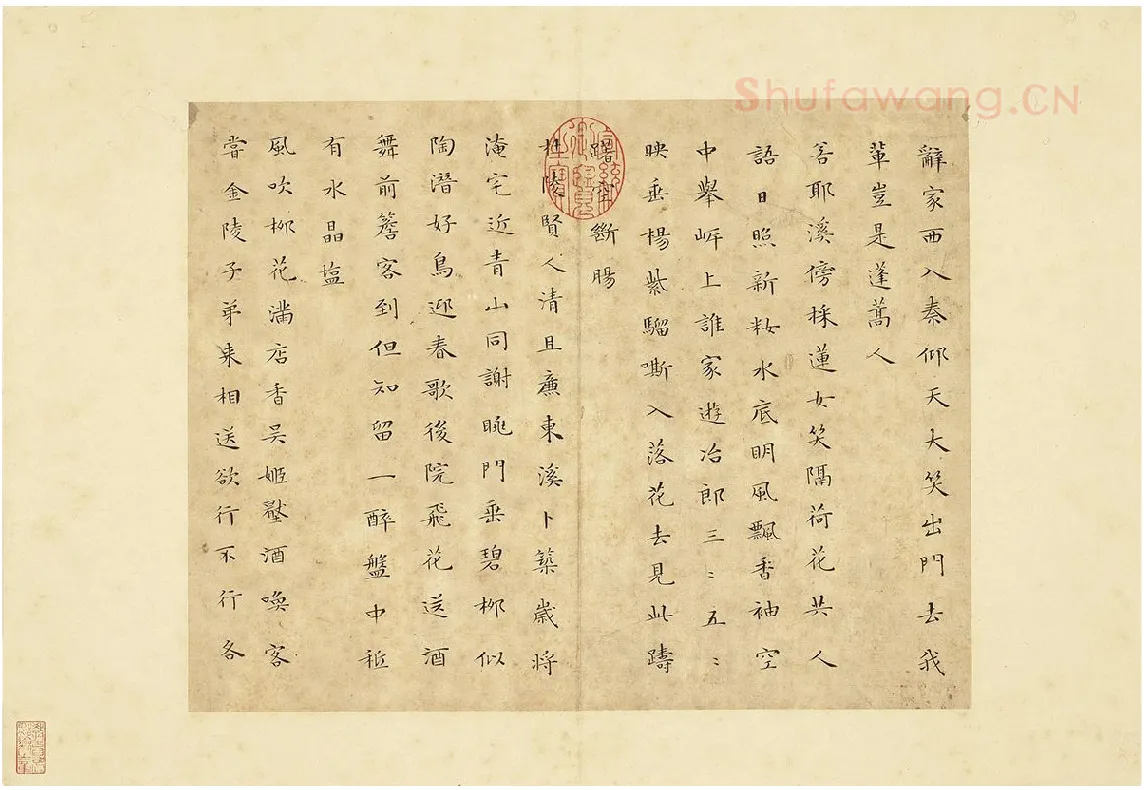 Shufawang.CN
辭家西入秦仰天大笑出門去我
輩豈是蓬蒿人
若耶溪傍採蓮女笑隔荷花共人
語日照新粧水底明風飄香袖空
中舉岸上誰家遊冶郎三〻五〻
映垂楊紫騮嘶入落花去見此躊
躇空斷腸
杜陵賢人清且廉東溪卜築歲將
淹宅近青山同謝朓門垂碧柳似
陶潛好鳥迎春歌後院飛花送酒
舞前簷客到但知留一醉盤中秪
有水晶塩
風吹柳花滿店香吳姬壓酒喚客
甞金陵子弟來相送欲行不行各
宣統御覽之寶